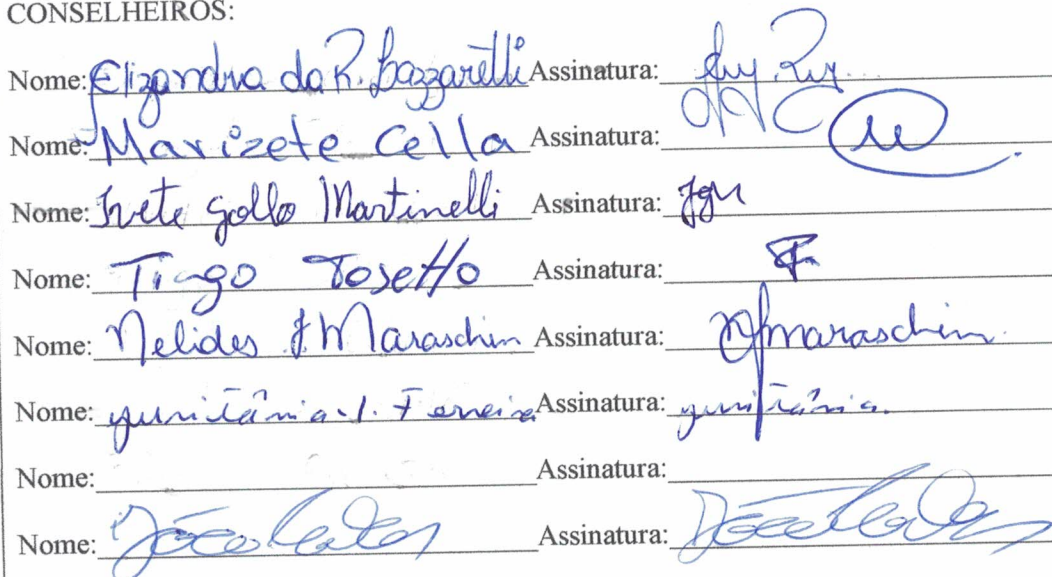 CONSELHEIROS:
Nome: Elizandra da R. Lazzaretti Assinatura:
Nome: Marizete Cella Assinatura:
Nome: Ivete Gollo Martinelli Assinatura: Jgm
Nome: Tiago Tosetto Assinatura:
Nome: Nelides J Maraschin Assinatura: NJmaraschin
Nome: Ferreira Assinatura:
Nome: Assinatura:
Nome: João Assinatura: João